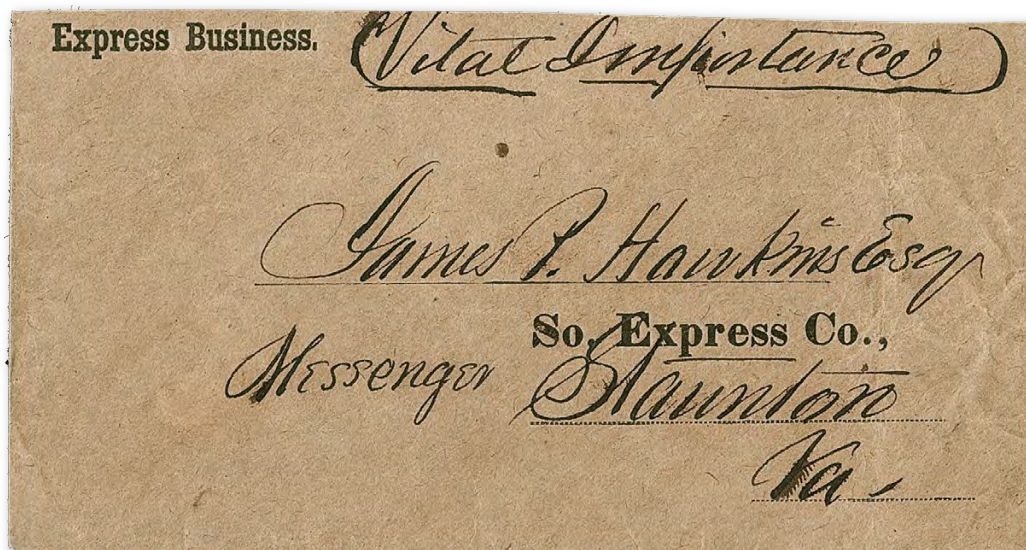 Express Business. (Vital Importance)
James P. Hawkins Esqr
So. Express Co.,
Messenger Staunton
Va.